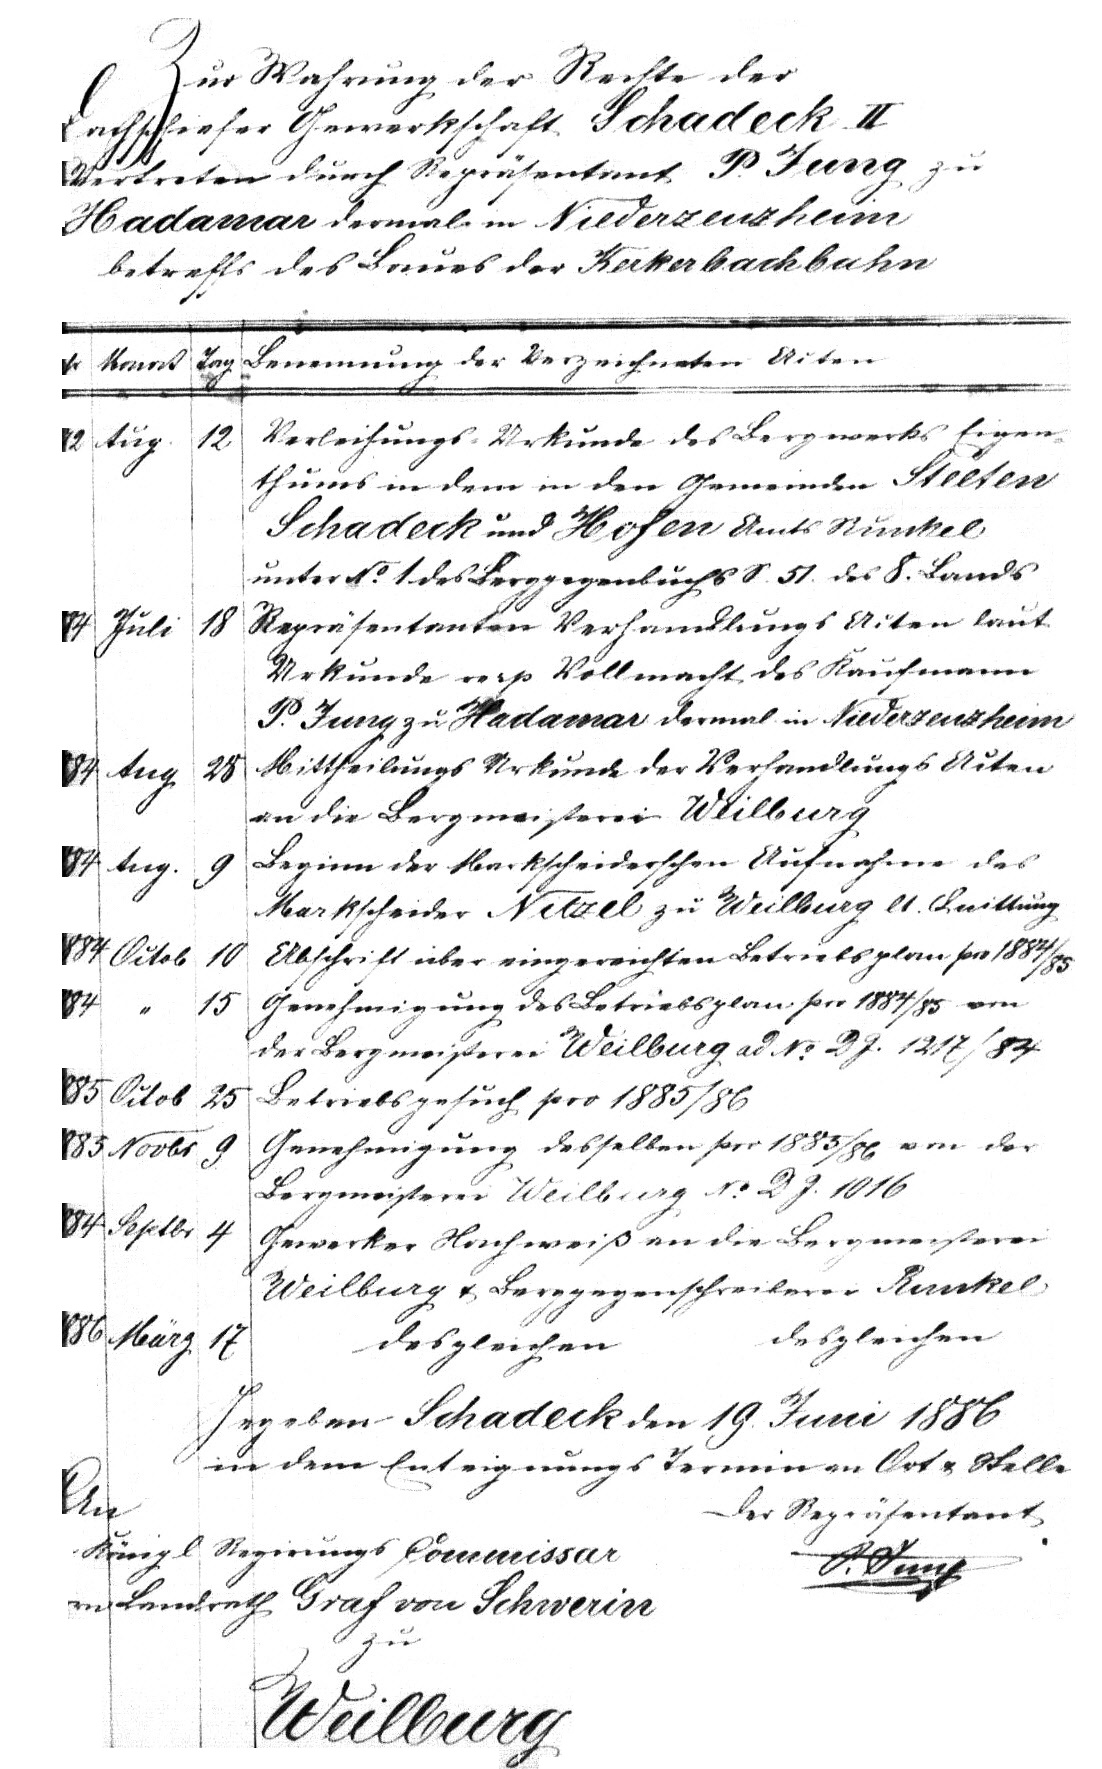 Zur Wahrung der Rechte der
Dachschiefer Gewerkschaft Schadeck II
Vertreten durch Repräsentant P. Jung zu
Hadamar dermal in Niederzeuzheim
betreffs des Baues der Kerkerbachbahn
Monat Tag Benennung der Verzeichneten Acten
72 Aug. 12 Verleihungs-Urkunde des Bergwerks Eigen-
thums in dem in den Gemeinden Steeten
Schadeck und Hofen Amts Runkel
unter No. 1 des Berggegenbuchs S. 51. des 8. Bands
84 Juli 18 Repräsentanten Verhandlungs Acten laut
Urkunde resp Vollmacht des Kaufmann
P. Jung zu Hadamar dermal in Niederzeuzheim
84 Aug 28 Mittheilungs Urkunde der Verhandlungs Acten
an die Bergmeisterei Weilburg
84 Aug. 9 Beginn der Markscheiderschen Aufnahme des
Markscheider Netzel zu Weilburg lt. Quittung
884 Octob 10 Abschrift über eingereichten Betriebsplan pro 1884/85
84 " 15 Genehmigung des Betriebsplan pro 1884/85 von
der Bergmeisterei Weilburg ad No. D J. 1217/84
885 Octob 25 Betriebsgesuch pro 1885/86
885 Novbr 9 Genehmigung desselben pro 1885/86 von der
Bergmeisterei Weilburg No. D J. 1016
84 Septbr 4 Gewerker Nachweiß an die Bergmeisterei
Weilburg & Berggegenschreiberei Runkel
886 März 17 desgleichen desgleichen
Gegeben Schadeck den 19. Juni 1886
in dem Enteignungs Termin an Ort & Stelle
An
Der Repräsentant
Königl Regierungs Commissar
P. Jung
rn Landrath Graf von Schwerin
zu
Weilburg